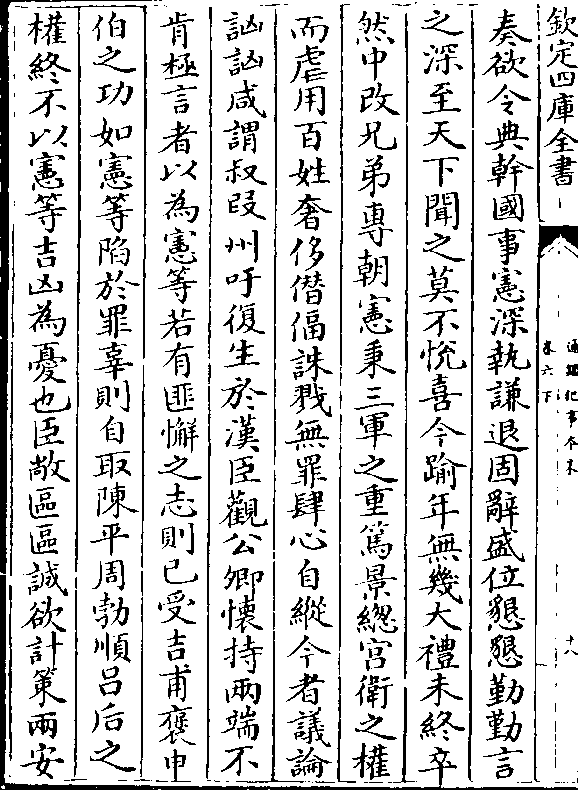 欽定四庫全書
通鑑紀事本末
卷六下
十八
奏欲令典幹國事憲深執謙退固辭盛位懇懇勤勤言
之深至天下聞之莫不悅喜今踰年無幾大禮未終卒
然中改兄弟專朝憲秉三軍之重篤景總宫衛之權
而虐用百姓奢侈僭偪誅戮無罪肆心自縱今者議論
訩訩咸謂叔段州吁復生於漢臣觀公卿懐持兩端不
肯極言者以為憲等若有匪懈之志則已受吉甫褒申
伯之功如憲等陷於罪辜則自取陳平周勃順吕后之
權終不以憲等吉凶為憂也臣敞區區誠欲計策兩安